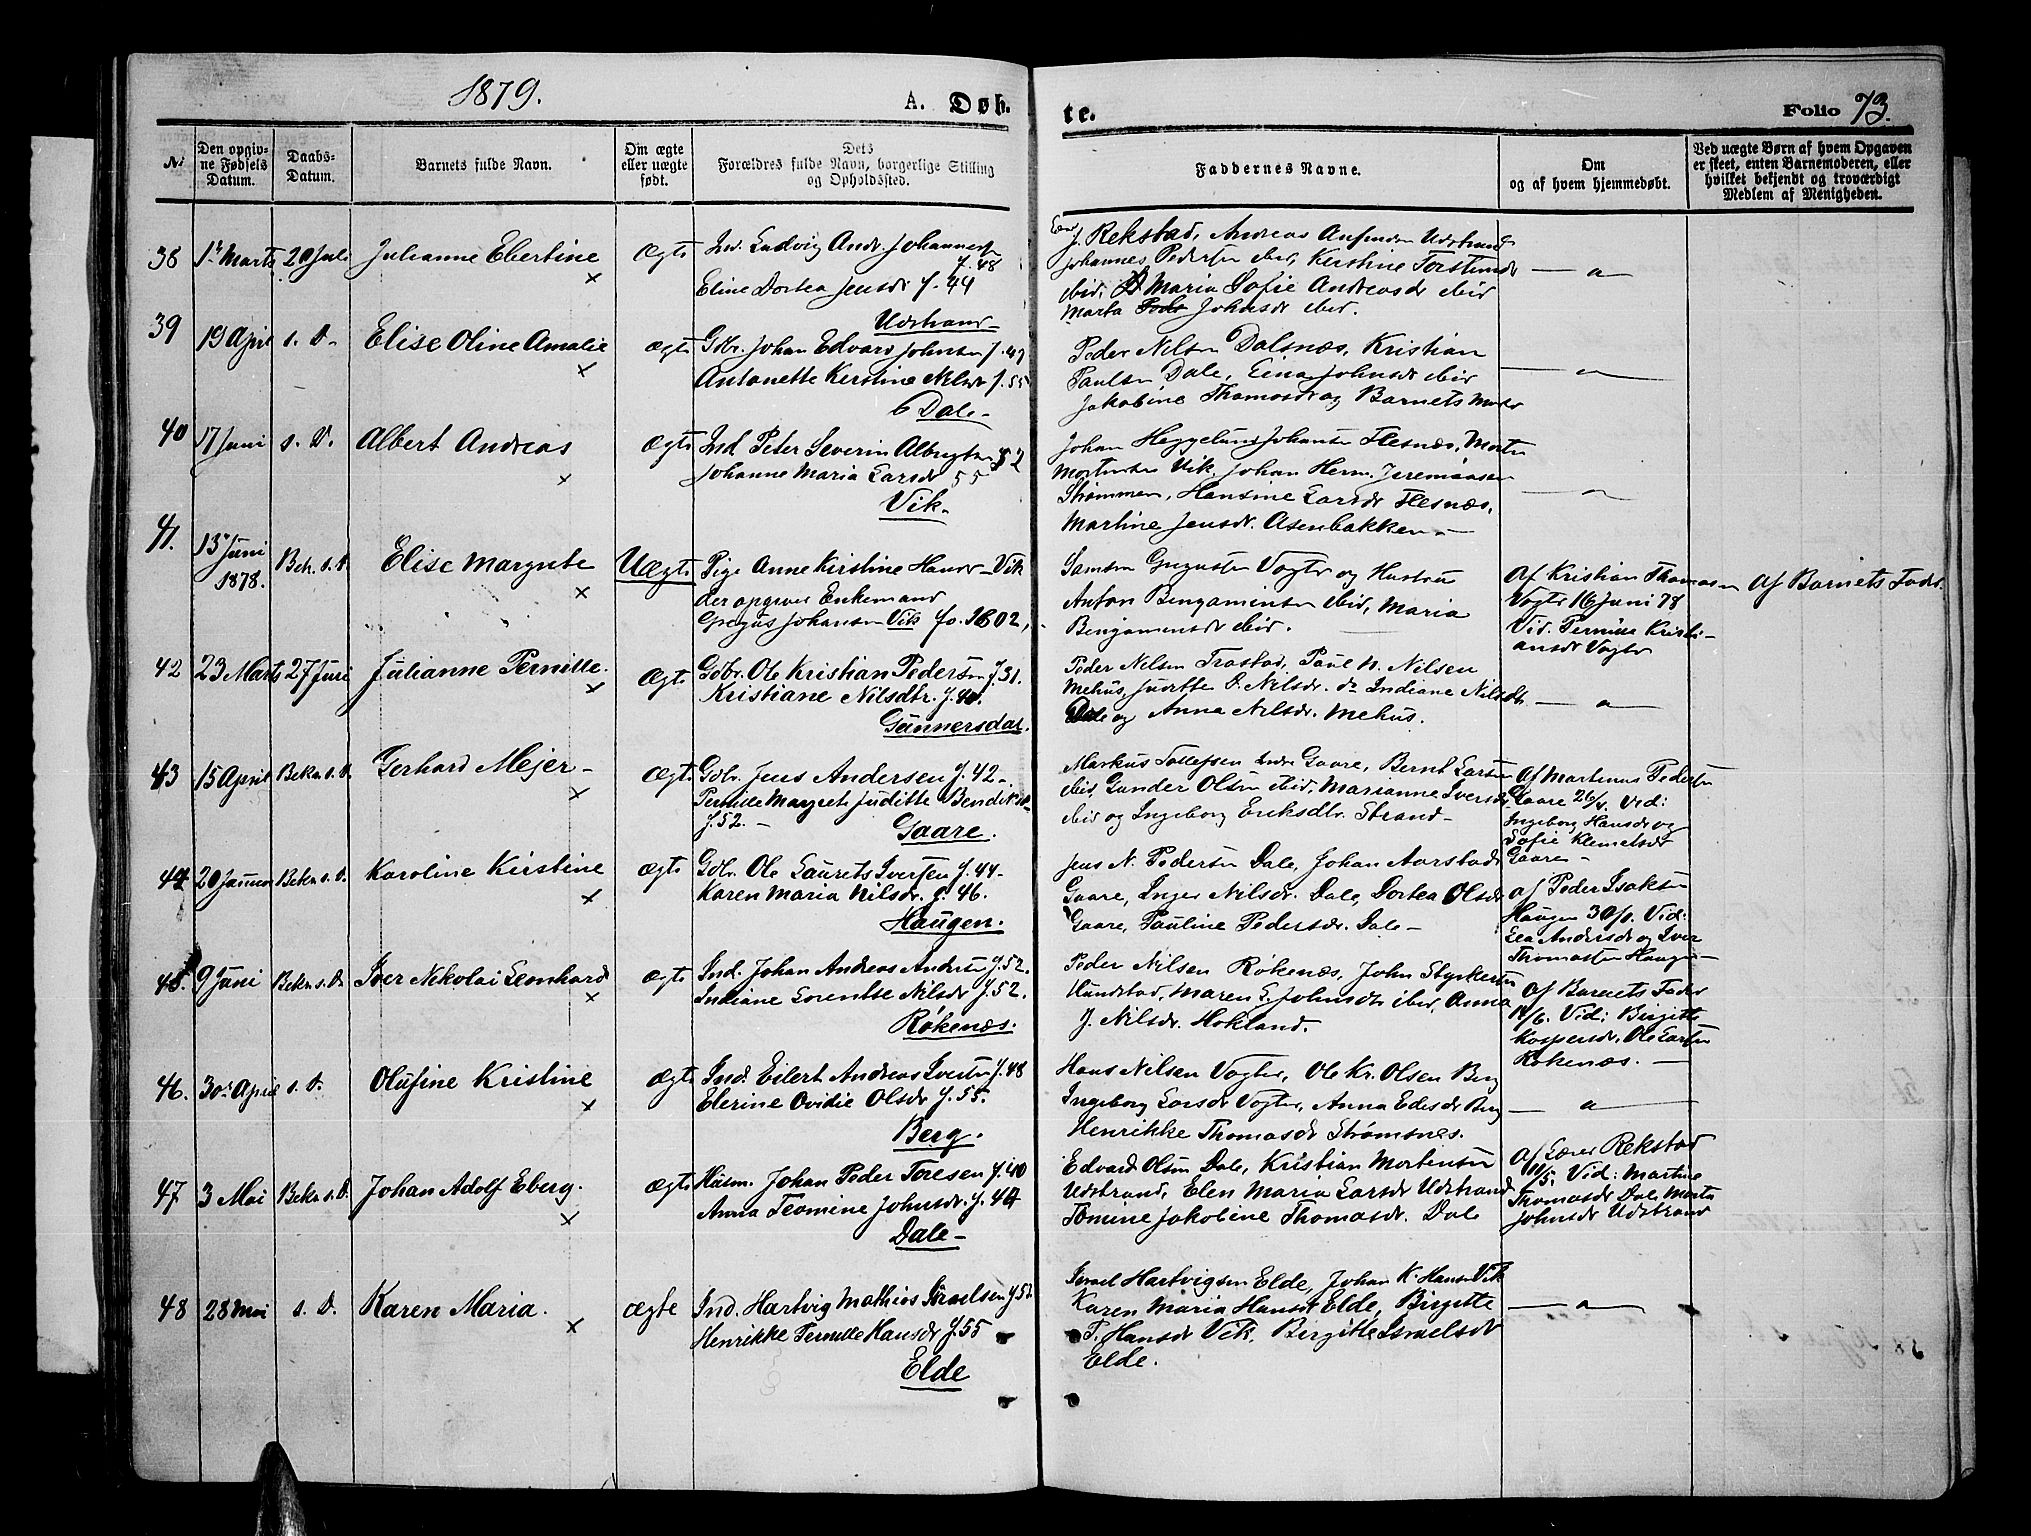 1879.
A. Døb-
te.
Folio 73.
No
Den opgiv-
ne Fødsels
Datum.
Daabs-
Datum.
Barnets fulde Navn.
Om ægte
eller uægte
født.
Dets
Forældres fulde Navn, borgerlige Stilling
og Opholdssted.
Faddernes Navne.
Om
og af hvem hjemmedøbt.
Ved uægte Børn af hvem Opgaven
er skeet, enten Barnemoderen, eller
hvilket bekjendt og troværdigt
Medlem af Menigheden.
38 1ste Marts 20 Juli Julianne Ebertine × Ægte
Ind. Ludvig Andr. Johannesen
f. 48
Eline Dortea Jensdr f. 44
Udstrand
J. Rekstad, Andreas Udstrand
Johannes Pedersen ibid, Kerstine
ibid, Maria Sofie Andreasdr ibid
Marta Johnsdr ibid.
39 19 April s. D. Elise Oline Amalie × Ægte
Gdbr. Johan Edvard Johnsen f. 47
Antonette Kerstine Nilsdr f. 55
Dale-
Peder Nilsen Dalsnæs, Kristian
Paulsen Dale, Johnsdr ibid
Jakobine Thomasdr og Barnets Moder
40 17 Juni s. D. Albert Andreas × Ægte
Ind Peter Severin Albrigtsen 52
Johanne Maria Larsdr 55
Vik-
Johan Heggelund Johansen Flesnæs, Morten
Mortensen Vik, Johan Herm. Jeremiasen
Strømmen, Hansine Larsdr Flesnæs,
Martine Jensdr. Asenbakken-
41. 13 Juni
1878. Bek. s. D. Elise Margrete × Uægte
Pige Anne Kirstine Hansdr Vik
der opgiver Enkemand
Johansen Vik fo. 1802,
Samson Vogter og Hustru
Anton Bengaminsen ibid, Maria
Benjamensdr ibid.
Af Kristian Thomasen
Vogter 16 Juni 78
Vid. Pernille Kristi-
ansdr Vogter
af Barnets Fader
42 23 Marts 27 Juli Julianne Pernille. × Ægte
Gdbr. Ole Kristian Pedersen f. 31.
Kristiane Nilsdtr. f. 40.
Gunnersdal.
Peder Nilsen Trastad, Paul N. Nilsen
Mehus, Nilsdr. do Indiane Nilsdtr.
Dale og Anna Nilsdr. Mehus.
43 15 April Bekr. s. D. Gerhard Mejer- × Ægte
Gdbr. Jens Andersen f. 42-
Pernille Margrete Juditte Bendiksdr
f. 52. -
Gaare.
Markus Tollefsen Gaare, Bernt Larsen
ibid, Gunder Olsen ibid, Marianne Iversdr
ibid og Ingeborg Eriksdtr. Strand-
Af Martinus Pedersen
Gaare 26/4. Vid:
Ingeborg Hansdr og
Sofie Klemetsdr
Gaare-
44 20 Januar Bekr. s. D. Karoline Kirstine × Ægte
Gdbr. Ole Laurets Iversen f. 44-
Karen Maria Nilsdr. f. 46.
Haugen.
Jens N. Pedersen Dale, Johan Aarstad
Gaare, Inger Nilsdr. Dale, Dortea Olsdr
Gaare, Pauline Pedersdr. Dale-
af Peder Isaksen
Haugen 30/1. Vid:
Lea Andersdr og Iver
Thomassen Haugen-
45. 9 Juni Bekr. s. D. Iver Nikolai Leonhard × Ægte
Ind. Johan Andreas Andersen f. 52.
Indiane Lorentse Nilsdr f. 52.
Røkenæs.
Peder Nilsen Røkenæs, John Styrkersen
Hundstad, Maren L. Johnsdr ibid, Anna
J. Nilsdr. Hokland.
Af Barnets Fader
11/6. Vid: Birgitte
Kaspersdr, Ole Larsen
Røkenæs. -
46. 30 April s. D. Olufine Kristine × Ægte
Ind. Eilert Andreas Iversen f. 48
Elerine Ovidie Olsdr f. 55.
Berg.
Hans Nilsen Vogter, Ole Kr. Olsen Berg
Ingeborg Larsdr Vogter, Anna Berg
Henrikke Thomasdr Strømsnes.
47 3 Mai Bekr. s. D. Johan Adolf Eberg. × Ægte
Husm. Johan Peder Toresen f. 40
Anna Teomine Johnsdr. f. 44
Dale-
Edvard Olsen Dale, Kristian Mortensen
Udstrand, Elen Maria Larsdr Udstrand
Tomine Jakobine Thomasdr. Dale
Af Lærer Rekstad
11/5. Vid: Martine
Thomasdr Dale, Marta
Johnsdr Udstrand
48 28 Mai s. D. Karen Maria. × Ægte
Ind. Hartvig Mathias Israelsen f. 52
Henrikke Pernille Hansdr f. 55
Elde
Israel Hartvigsen Elde, Johan K. Hansen Vik
Karen Maria Hansdr Elde, Birgitte
P. Hansdr Vik. Birgitte Israelsdr
Elde.